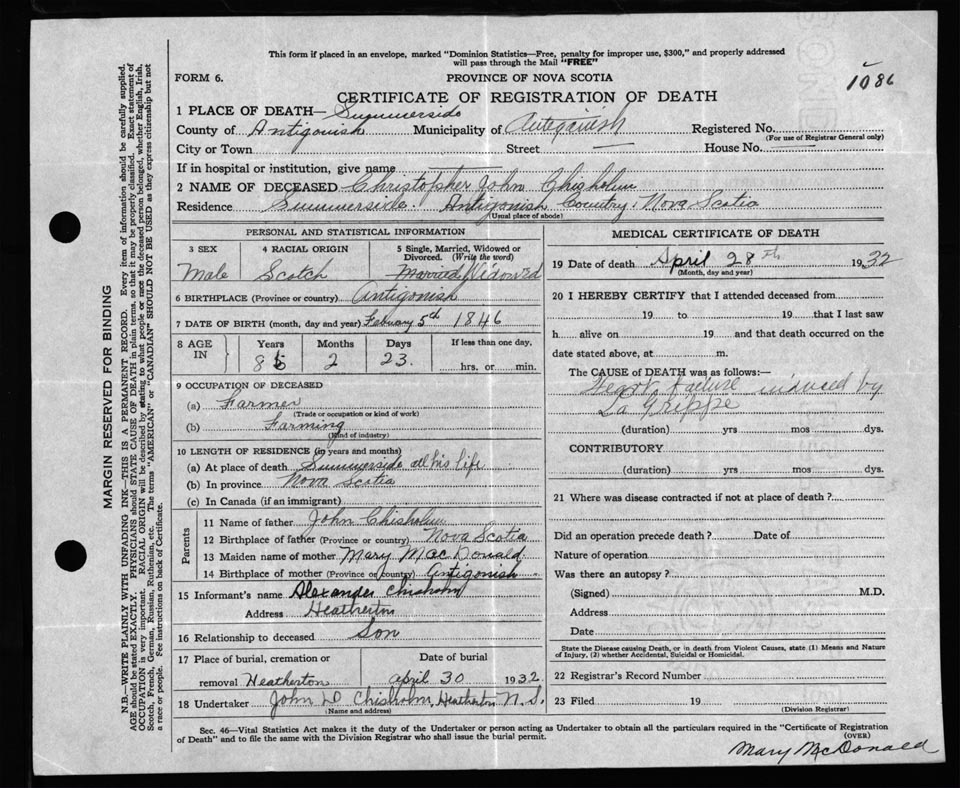 This form if placed in an envelope, marked "Dominion Statistics—Free, penalty for improper use, $300," and properly addressed
will pass through the Mail "FREE"
FORM 6.
PROVINCE OF NOVA SCOTIA
1086
CERTIFICATE OF REGISTRATION OF DEATH
1 PLACE OF DEATH— Summerside
County of Antigonish Municipality of Antigonish Registered No.
(For use of Registrar General only)
City or Town Street — House No. —
If in hospital or institution, give name —
2 NAME OF DECEASED Christopher John Chisholm
Residence Summerside. Antigonish Country, Nova Scotia
(Usual place of abode)
PERSONAL AND STATISTICAL INFORMATION
3 SEX 4 RACIAL ORIGIN 5 Single, Married, Widowed or
Divorced. (Write the word)
Male Scotch Married Widowed
6 BIRTHPLACE (Province or country) Antigonish
7 DATE OF BIRTH (month, day and year) February 5th 1846
8 AGE IN Years Months Days If less than one day,
86 2 23. hrs. or min.
9 OCCUPATION OF DECEASED
(a) Farmer
(Trade or occupation or kind of work)
(b) Farming
(Kind of industry)
10 LENGTH OF RESIDENCE (in years and months)
(a) At place of death Summerside all his life
(b) In province Nova Scotia
(c) In Canada (if an immigrant)
Parents
11 Name of father John Chisholm
12 Birthplace of father (Province or country) Nova Scotia
13 Maiden name of mother Mary MacDonald
14 Birthplace of mother (Province or country) Antigonish
15 Informant's name Alexander Chisholm
Address Heatherton
16 Relationship to deceased Son
17 Place of burial, cremation or Date of burial
removal Heatherton april 30 1932
18 Undertaker John D Chisholm, Heatherton N. S.
(Name and address)
MEDICAL CERTIFICATE OF DEATH
19 Date of death April 28th 1932
(Month, day and year)
20 I HEREBY CERTIFY that I attended deceased from
19 to 19 that I last saw
h alive on 19 and that death occurred on the
date stated above, at m.
The CAUSE OF DEATH was as follows:—
Heart Faclure induced by
La Grippe
(duration) yrs mos dys.
CONTRIBUTORY
(duration) yrs mos dys.
21 Where was disease contracted if not at place of death?
Did an operation precede death? Date of
Nature of operation
Was there an autopsy?
(Signed) M.D.
Address
Date
State the Disease causing Death, or in death from Violent Causes, state (1) Means and Nature
of Injury, (2) whether Accidental, Suicidal or Homicidal.
22 Registrar's Record Number
23 Filed 19
(Division Registrar)
Sec. 46—Vital Statistics Act makes it the duty of the Undertaker or person acting as Undertaker to obtain all the particulars required in the "Certificate of Registration
of Death" and to file the same with the Division Registrar who shall issue the burial permit.
(OVER)
Mary McDonald
MARGIN RESERVED FOR BINDING
N.B.—WRITE PLAINLY WITH UNFADING INK—THIS IS A PERMANENT RECORD. Every item of information should be carefully supplied.
AGE should be stated EXACTLY. PHYSICIANS should STATE CAUSE OF DEATH in plain terms, so that it may be properly classified. Exact statement of
OCCUPATION is very important. RACIAL ORIGIN will be described by stating to what people or race the deceased person belonged, whether English, Irish,
Scotch, French, German, Russian, Ruthenian, etc. The terms "AMERICAN" or "CANADIAN" SHOULD NOT BE USED as they express citizenship but not
a race or people. See instructions on back of Certificate.